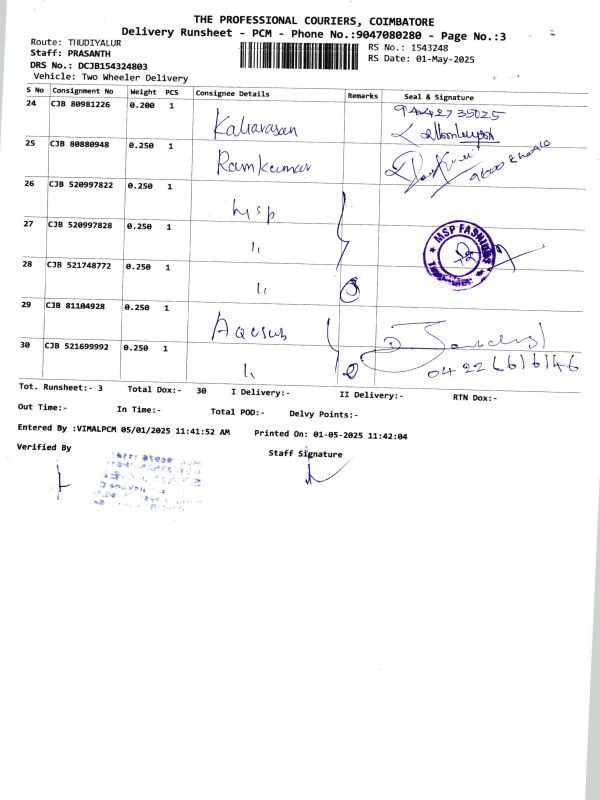 THE PROFESSIONAL COURIERS, COIMBATORE
Delivery Runsheet - PCM - Phone No.:9047080280 - Page No.:3
Route: THUDIYALUR
RS No.: 1543248
Staff: PRASANTH
RS Date: 01-May-2025
DRS No.: DCJB154324803
Vehicle: Two Wheeler Delivery
S No Consignment No Weight PCS Consignee Details Remarks Seal & Signature
24 CJB 80981226 0.200 1 Kaliarasan 9442735025
25 CJB 80880948 0.250 1 Ramkumar
26 CJB 520997822 0.250 1 Msp
27 CJB 520997828 0.250 1 ıı MSP FASHION
28 CJB 521748772 0.250 1 ıı 3
29 CJB 81104928 0.250 1
30 CJB 521699992 0.250 1 ıı 2 04226616146
Tot. Runsheet:- 3 Total Dox:- 30 I Delivery:- II Delivery:- RTN Dox:-
Out Time:- In Time:- Total POD:- Delvy Points:-
Entered By :VIMALPCM 05/01/2025 11:41:52 AM Printed On: 01-05-2025 11:42:04
Verified By Staff Signature